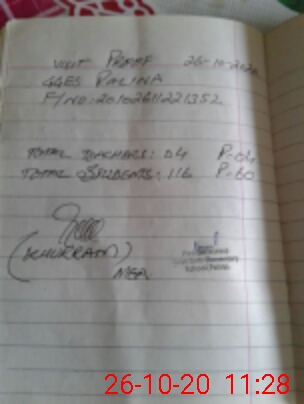 VISIT PROOF 26-10-2020
GGES RALINA
F/NO: 20102611221352
TOTAL TEACHERS: 04 P-04
TOTAL STUDENTS: 116 P-60
(KHURRAM)
MEA
26-10-20 11:28